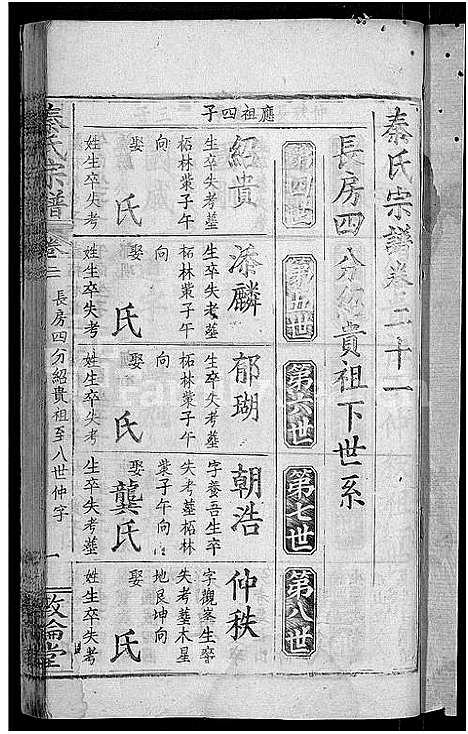 秦氏宗譜卷二十一
長房四分紹貴祖下世系
第四世
第五世
第六世
第七世
第八世
應祖四子
紹貴
生卒失考墓
柘林業子午
向
娶 氏
姓生卒失考
添麟
生卒失考墓
柘林業子午
向
娶 氏
姓生卒失考
郁瑚
生卒失考墓
柘林業子午
向
娶 氏
姓生卒失考
朝浩
字養吾生卒
失考墓柘林
業子午向
娶龔氏
生卒失考墓
仲秩
字觀峯生卒
失考墓木星
地艮坤向
娶 氏
姓生卒失考
秦氏宗譜
卷二
長房四分紹貴祖至八世仲字
一
敦倫堂